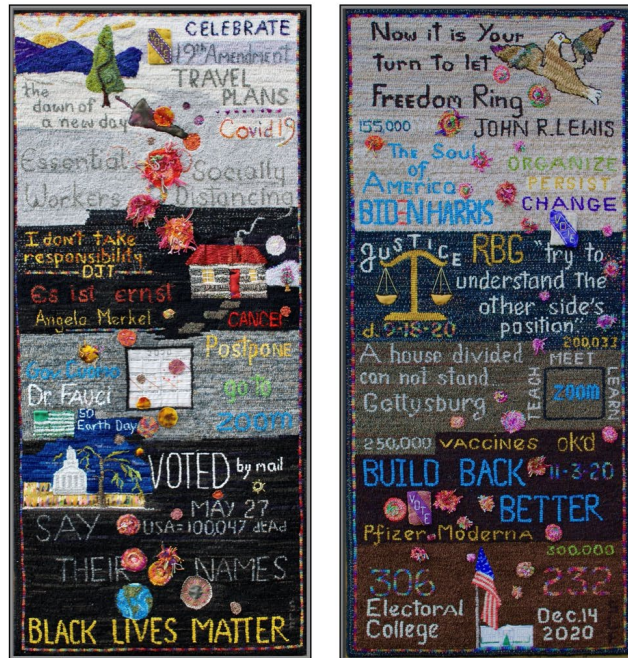 CELEBRATE
19th Amendment
TRAVEL
PLANS
the
dawn of
a new day
Covid19
Essential Socially
Workers Distancing
I don't take
responsibility
DJT
Es ist ernst
Angela Merkel
CANCEL
Postpone
Gov Cuomo
Dr FAUCI
go to
zoom
50
Earth Day
VOTED by mail
MAY 27
USA=100,047 dEAd
SAY
THEIR NAMES
BLACK LIVES MATTER
Now it is Your
turn to let
Freedom Ring
155,000
JOHN R. LEWIS
The Soul
of
America
BIDEN HARRIS
ORGANIZE
PERSIST
CHANGE
JUSTICE
RBG "try to
understand the
other side's
position."
d. 9-18-20
200,033
A house divided
can not stand...
Gettysburg
MEET
TEACH
zoom
LEARN
250,000 VACCINES OK'd
BUILD BACK 11-3-20
BETTER
VOTE
Pfizer Moderna
300,000
306 232
Electoral
College
Dec. 14
2020